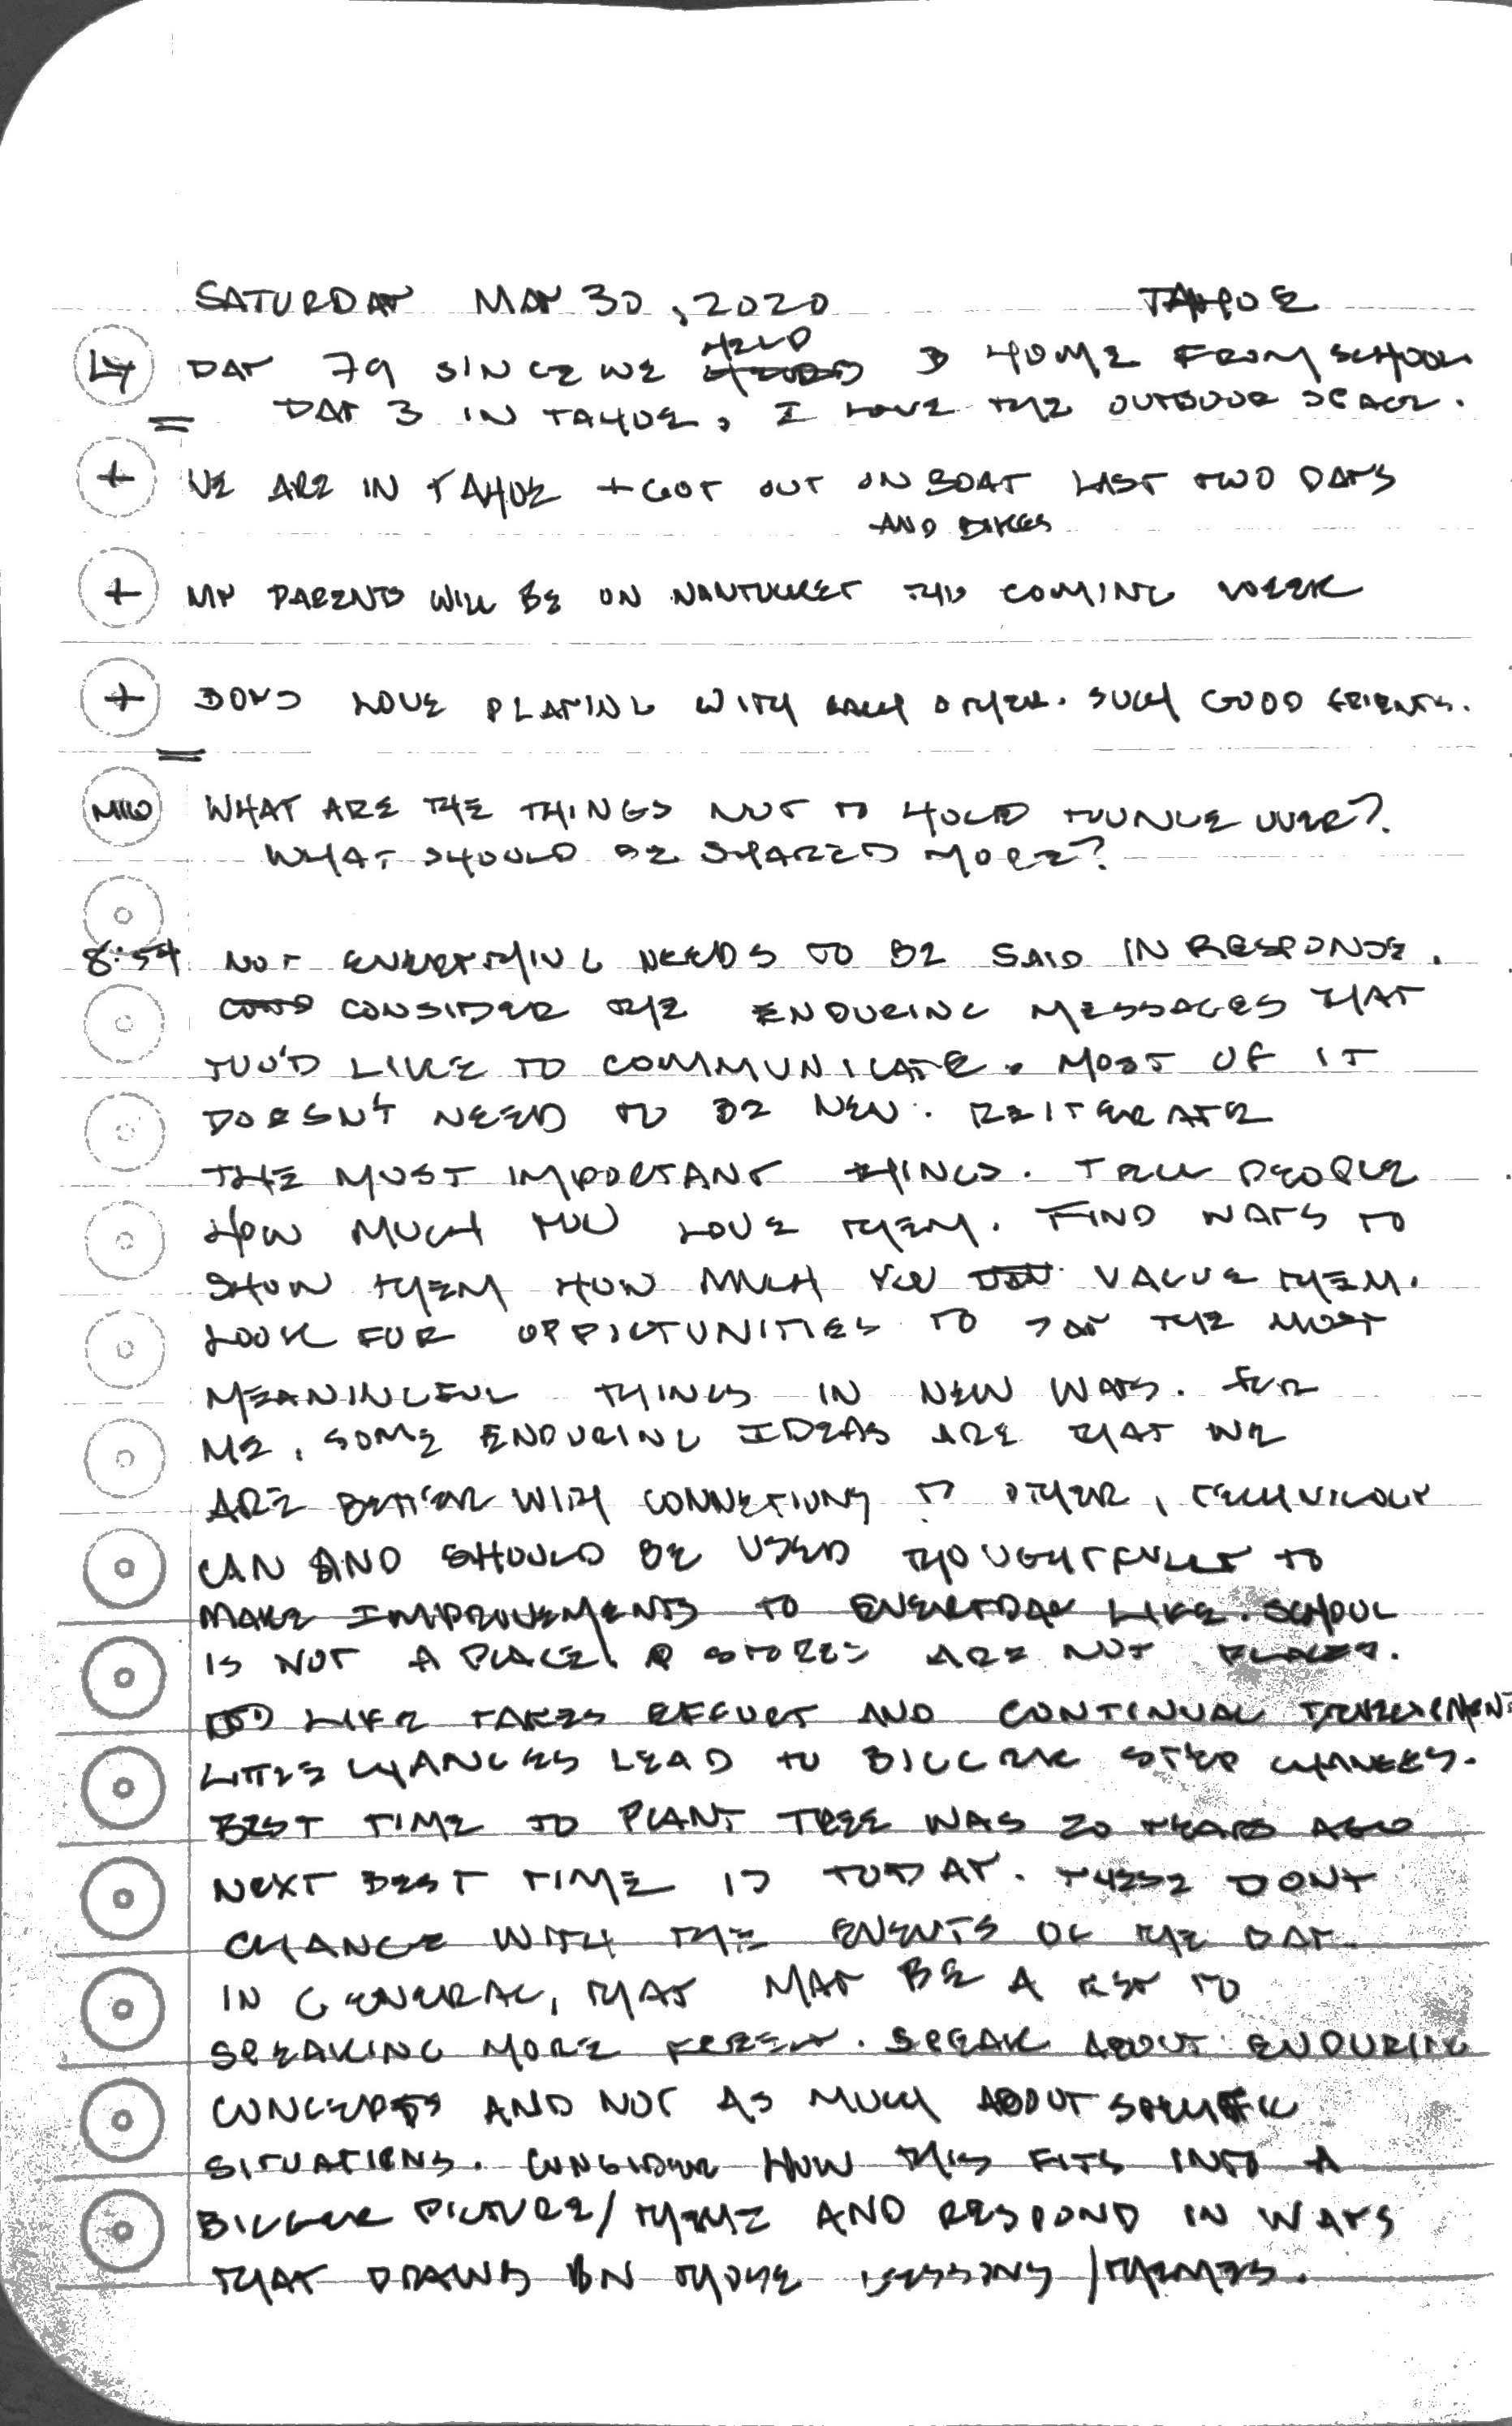 SATURDAY MAY 30, 2020 TAHOE
LY DAY 79 SINCE WE HELD B HOME FROM SCHOOL
DAY 3 IN TAHOE, I LOVE THE OUTDOOR SPACE.
+ WE ARE IN TAHOE + GOT OUT ON BOAT LAST TWO DAYS
AND BIKES
+ MY PARENTS WILL BE ON NANTUCKET THIS COMING WEEK
+ BOYS LOVE PLAYING WITH EACH OTHER. SUCH GOOD FRIENDS.
MIW WHAT ARE THE THINGS NOT TO HOLD TOUNGE OVER?
WHAT SHOULD BE SHARED MORE?
8:54 NOT EVERYTHING NEEDS TO BE SAID IN RESPONSE.
CONSIDER THE ENDURING MESSAGES THAT
YOU'D LIKE TO COMMUNICATE. MOST OF IT
DOESN'T NEED TO BE NEW. REITERATE
THE MOST IMPORTANT THINGS. TELL PEOPLE
HOW MUCH YOU LOVE THEM. FIND WAYS TO
SHOW THEM HOW MUCH YOU VALUE THEM.
LOOK FOR OPPICTUNITIES TO SAY THE MOST
MEANINGFUL THINGS IN NEW WAYS. FOR
ME, SOME ENDURING IDEAS ARE THAT WE
ARE BETTER WITH CONNETIONS TO OTHER, TECHNOLOGY
CAN AND SHOULD BE USED THOUGHTFULLY TO
MAKE IMPROVEMENTS TO EVERYDAY LIFE. SCHOOL
IS NOT A PLACE, STORES ARE NOT PLACES.
LIFE TAKES EFFORT AND CONTINUAL
LITTLE CHANGES LEAD TO BIGGER STEP CHANGES.
BEST TIME TO PLANT TREE WAS 20 YEARS AGO
NEXT BEST TIME IS TODAY. THESE DONT
CHANGE WITH THE EVENTS OF THE DAY.
IN GENERAL, THAT MAY BE A KEY TO
SPEAKING MORE FREELY. SPEAK ABOUT ENDURING
CONCEPTS AND NOT AS MUCH ABOUT SPECIFIC
SITUATIONS. CONSIDER HOW THIS FITS INTO A
BIGGER PICTURE/THEME AND RESPOND IN WAYS
THAT DRAWS ON THOSE LESSONS/THEMES.